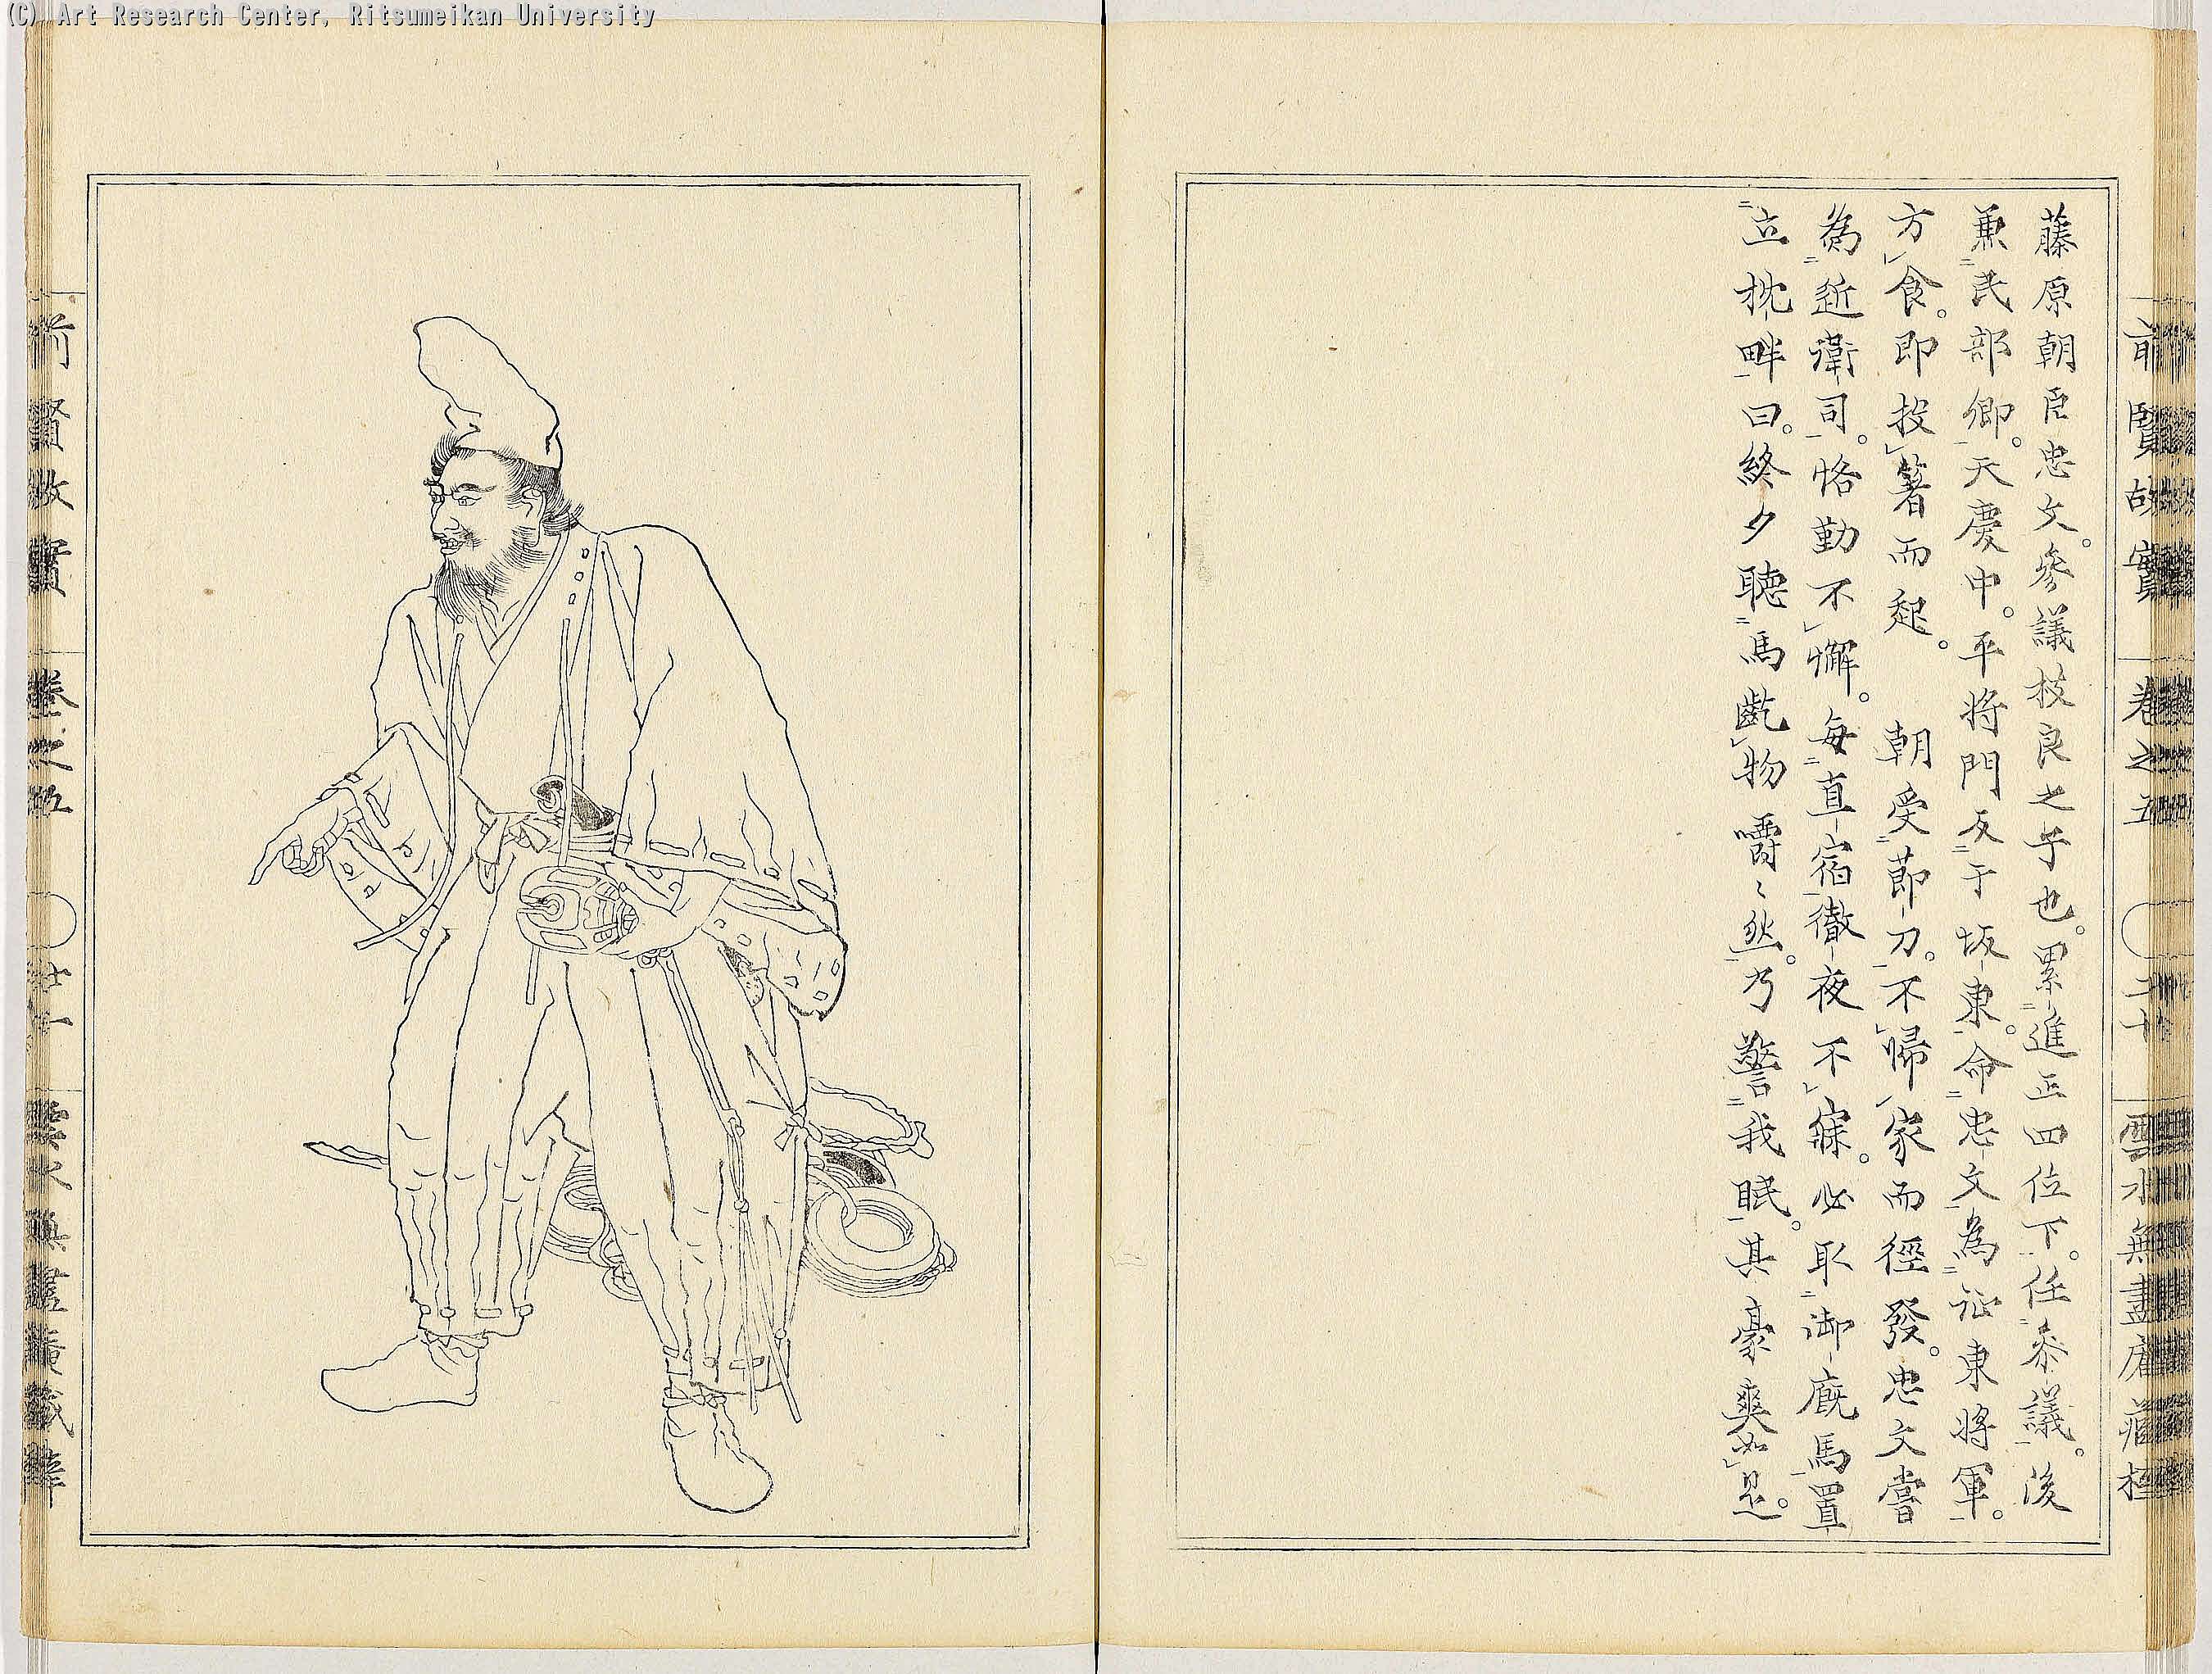 (C) Art Research Center, Ritsumeikan University
前賢故實 卷之五 二十 雲水無盡庵藏
藤原朝臣忠文。參議枝良之子也。累進正四位下。任参議。後
兼民部卿。天慶中。平將門反于坂東。命忠文為征東將軍。
方食。即投箸而起。 朝受節刀。不歸家而徑發。忠文嘗
為近衛司。恪勤不懈。每直宿徹夜不寐。必取御廐馬置
立枕畔曰。終夕聽馬齕物嚼〻然。乃警我眠。其豪爽如是。
前賢故實 卷之五 廿一